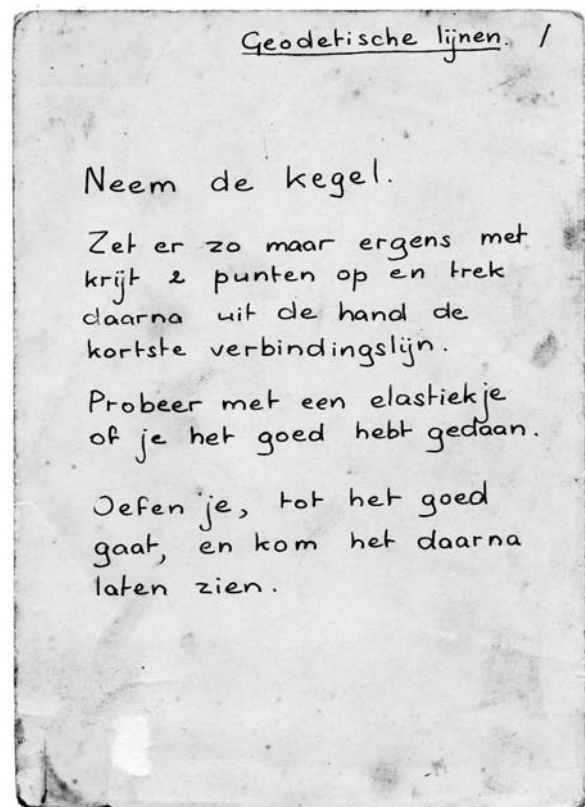 Geodetische lijnen. 1
Neem de kegel.
Zet er zo maar ergens met
krijt 2 punten op en trek
daarna uit de hand de
kortste verbindingslijn.
Probeer met een elastiekje
of je het goed hebt gedaan.
Oefen je, tot het goed
gaat, en kom het daarna
laten zien.